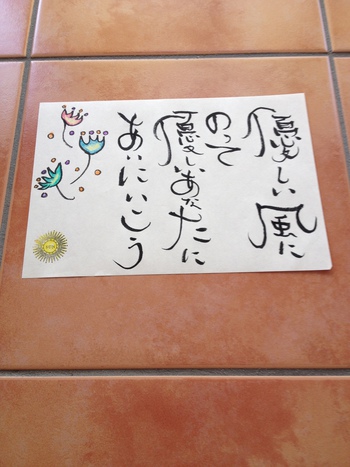 優しい風に
のって
優しいあなたに
あいにいこう